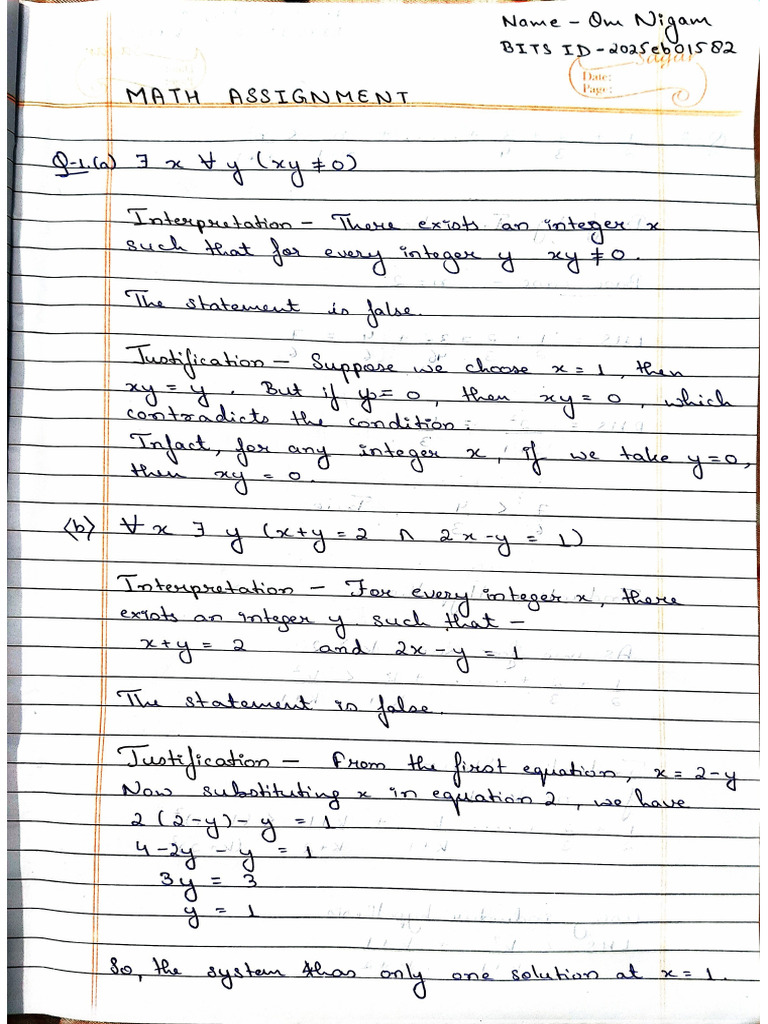 Name - Om Nigam
BITS ID - 2025eb01582
Sagar
Date:
Page:
MATH ASSIGNMENT
Q-1.(a) ∃ x ∀ y (xy ≠ 0)
Interpretation - There exists an integer x
such that for every integer y xy ≠ 0.
The statement is false.
Justification - Suppose we choose x = 1, then
xy = y. But if y = 0, then xy = 0, which
contradicts the condition.
Infact, for any integer x, if we take y = 0,
then xy = 0.
(b) ∀ x ∃ y (x+y = 2 ∧ 2x-y = 1)
Interpretation - For every integer x, there
exists an integer y such that -
x+y = 2 and 2x-y = 1
The statement is false.
Justification - From the first equation, x = 2-y
Now substituting x in equation 2, we have
2(2-y)-y = 1
4-2y-y = 1
3y = 3
y = 1
So, the system has only one solution at x = 1.